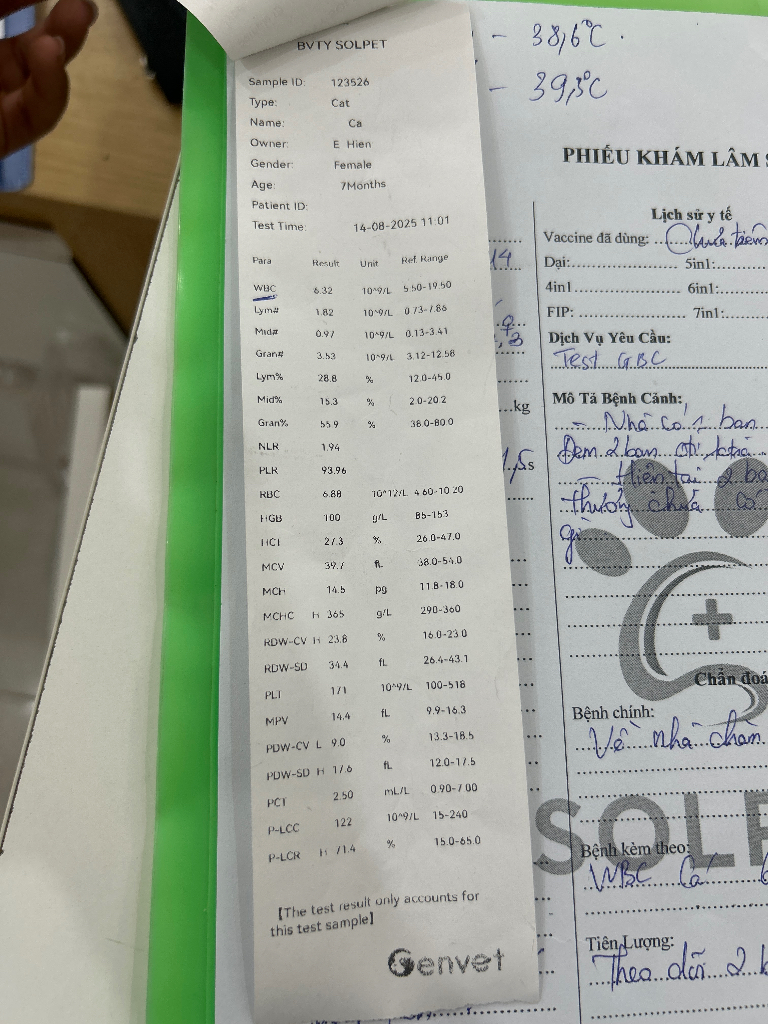 BVTY SOLPET
Sample ID: 123526
Type: Cat
Name: Ca
Owner: E Hien
Gender: Female
Age: 7Months
Patient ID:
Test Time: 14-08-2025 11:01
Para Result Unit Ref. Range
WBC 6.32 10^9/L 5.50-19.50
Lym# 1.82 10^9/L 0.73-7.86
Mid# 0.97 10^9/L 0.13-3.41
Gran# 3.53 10^9/L 3.12-12.58
Lym% 28.8 % 12.0-45.0
Mid% 15.3 % 2.0-20.2
Gran% 55.9 % 38.0-80.0
NLR 1.94
PLR 93.96
RBC 6.88 10^12/L 4.60-10.20
HGB 100 g/L 85-153
HCT 27.3 % 26.0-47.0
MCV 39.7 fL 38.0-54.0
MCH 14.5 pg 11.8-18.0
MCHC H 365 g/L 290-360
RDW-CV H 23.8 % 16.0-23.0
RDW-SD 34.4 fL 26.4-43.1
PLT 171 10^9/L 100-518
MPV 14.4 fL 9.9-16.3
PDW-CV L 9.0 % 13.3-18.5
PDW-SD H 17.6 fL 12.0-17.5
PCT 2.50 mL/L 0.90-7.00
P-LCC 122 10^9/L 15-240
P-LCR H 71.4 % 15.0-65.0
[The test result only accounts for
this test sample]
Genvet
- 38,6°C
- 39,3°C
PHIẾU KHÁM LÂM
Lịch sử y tế
Vaccine đã dùng: Chưa tiêm
Dại: 5in1:
4in1 6in1:
FIP: 7in1:
Dịch Vụ Yêu Cầu:
Test GBC
kg
Mô Tả Bệnh Cảnh:
- Nhà có 2 bạn
Đem 2 bạn đi
- Hiện tại 2
thường chưa có
gì
Chẩn đoá
Bệnh chính:
Về nhà chăm
SOLP
Bệnh kèm theo:
WBC Cá
Tiên Lượng:
Theo dõi 2